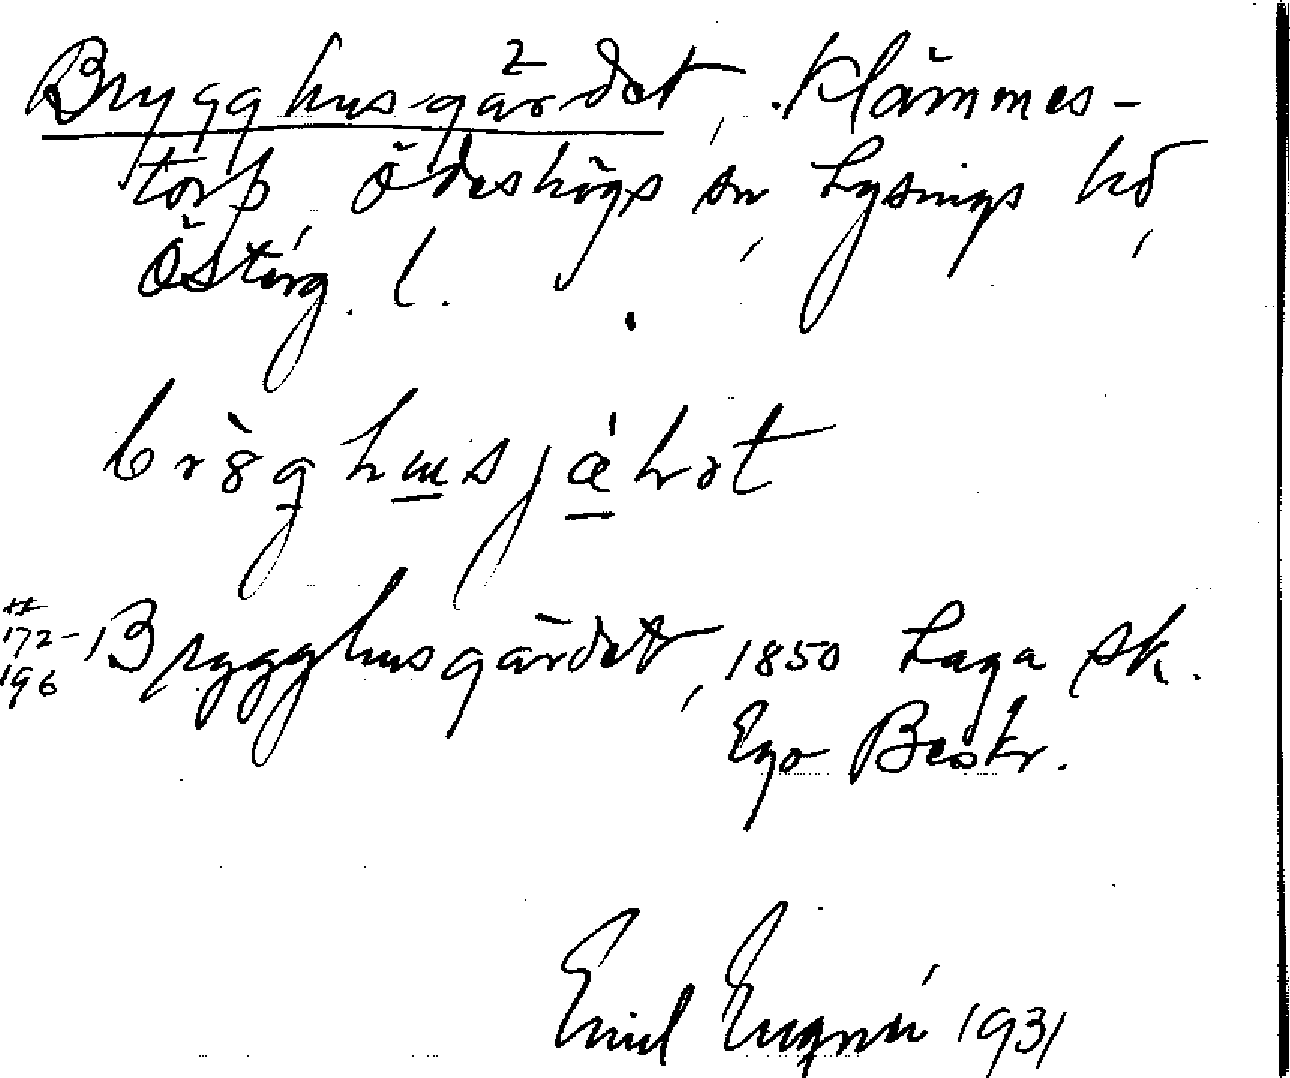 Brygghusgärdet, Klämmes-
torp, Ödeshögs sn, Lysings hd,
Östérg. l.
172-
196
Brygghusgärdet, 1850 Laga sk.
Ego Beskr.
Emil 1931